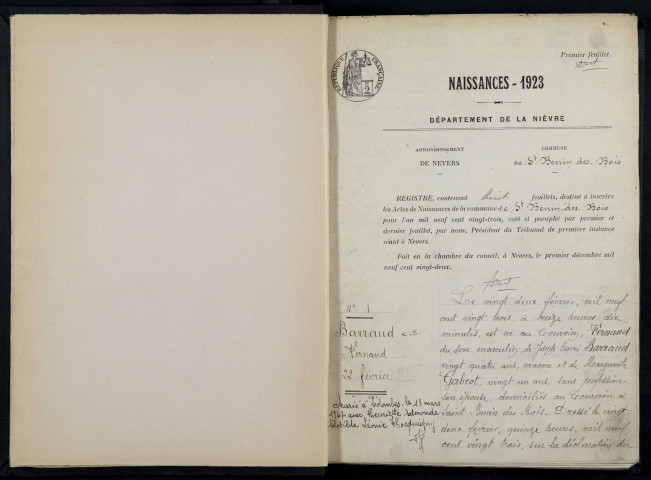 Premier feuillet.
RÉPUBLIQUE FRANÇAISE
NAISSANCES - 1923
DÉPARTEMENT DE LA NIÈVRE
ARRONDISSEMENT
DE NEVERS
COMMUNE
de St Benin des Bois
REGISTRE, contenant huit feuillets, destiné à inscrire
les Actes de Naissances de la commune de St Benin des Bois
pour l'an mil neuf cent vingt-trois, coté et paraphé par premier et
dernier feuillet, par nous, Président du Tribunal de première instance
séant à Nevers.
Fait en la chambre du conseil, à Nevers, le premier décembre mil
neuf cent vingt-deux.
No 1
Barraud
Fernand
22 février
Marié à Colombes, le 13 mars
1947 avec Henriette Edmonde
Clotilde Léonie
Le vingt deux février, mil neuf
cent vingt trois, à treize heures dix
minutes, est né au Courvion, Fernand
du sexe masculin, de Joseph Henri Barraud
vingt quatre ans, maçon et de Marguerite
Gabeot, vingt un ans, sans profession
son épouse, domiciliés au Courvion
Saint Benin des Bois. Dressé le vingt
deux février, quinze heures, mil neuf
cent vingt trois, sur la déclaration du